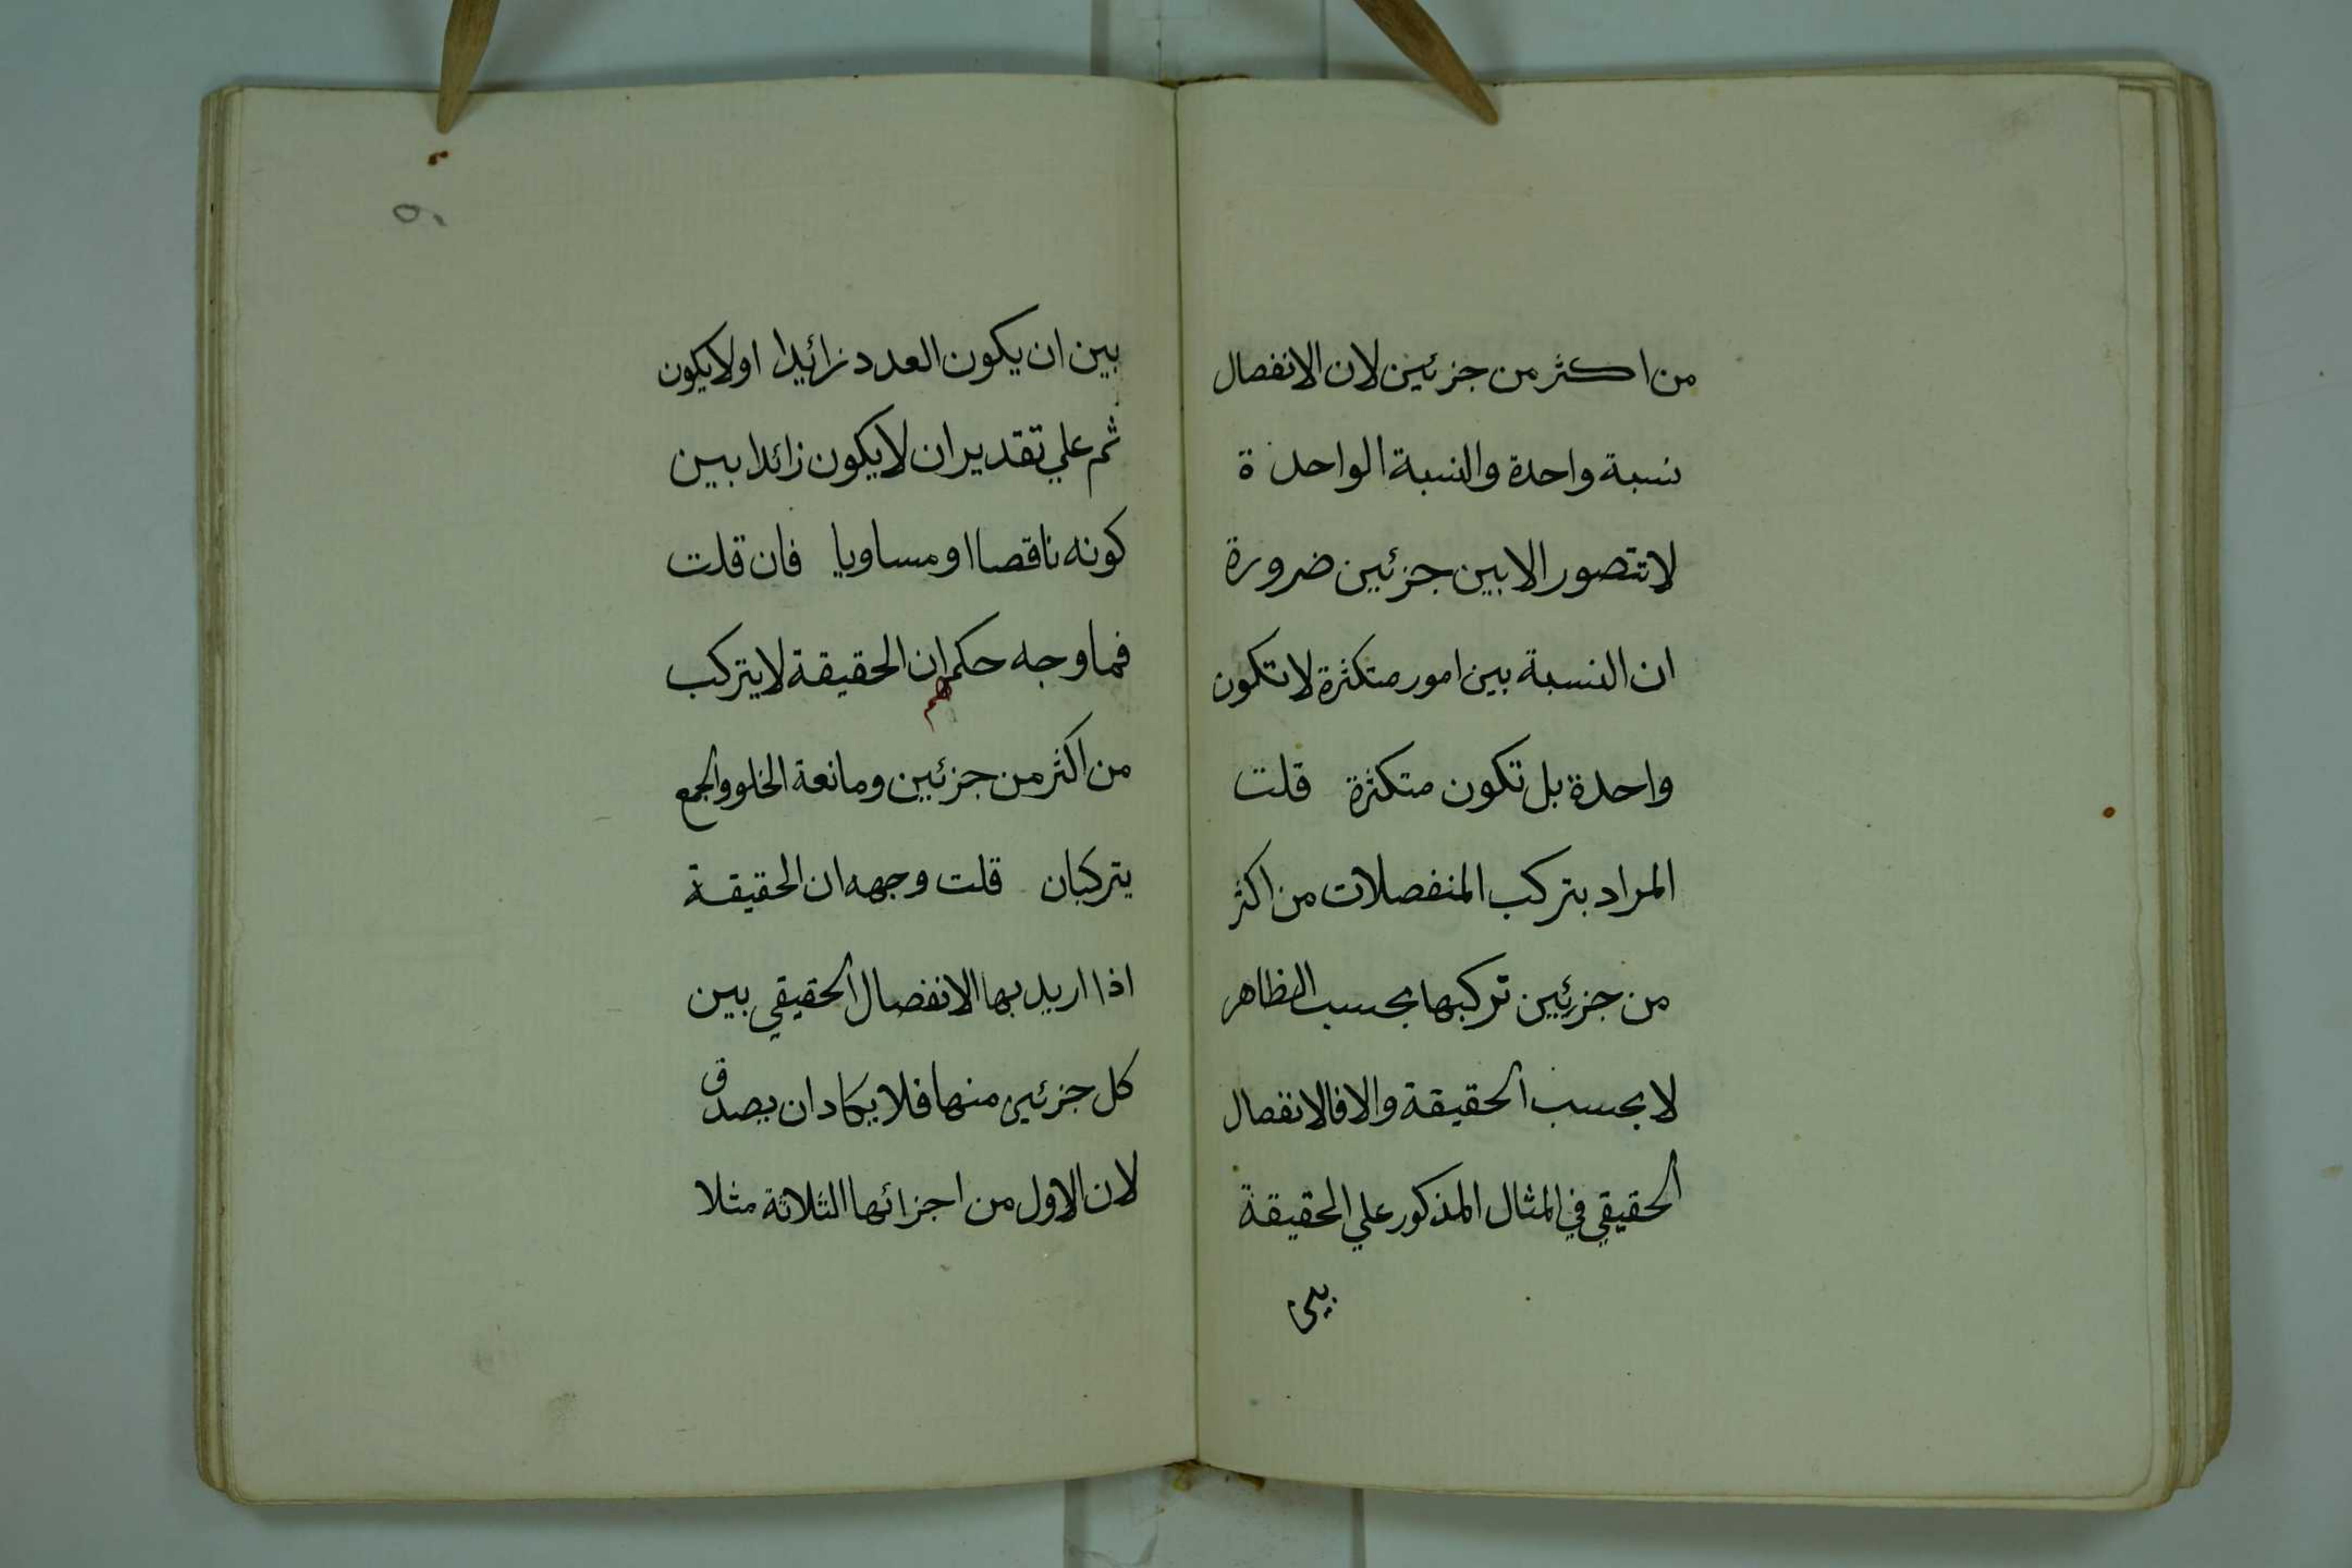 من اكثر من جزئين لان الانفصال
نسبة واحدة والنسبة الواحدة
لا تتصور الا بين جزئين ضرورة
ان النسبة بين امور متكثرة لا تكون
واحدة بل تكون متكثرة قلت
المراد بتركب المنفصلات من اكثر
من جزئين تركبها بحسب الظاهر
لا بحسب الحقيقة والا فالانفصال
الحقيقي في المثال المذكور علي الحقيقة
بين
بين ان يكون العدد زائيدا او لا يكون
ثم علي تقدير ان لا يكون زائدا بين
كونه ناقصا او مساويا فان قلت
فما وجه حكمهم ان الحقيقة لا يتركب
من اكثر من جزئين ومانعة الخلو والجمع
يتركبان قلت وجهه ان الحقيقة
اذا اريد بها الانفصال الحقيقي بين
كل جزئين منها فلا يكاد ان يصدق
لان الاول من اجزائها الثلاثة مثلا